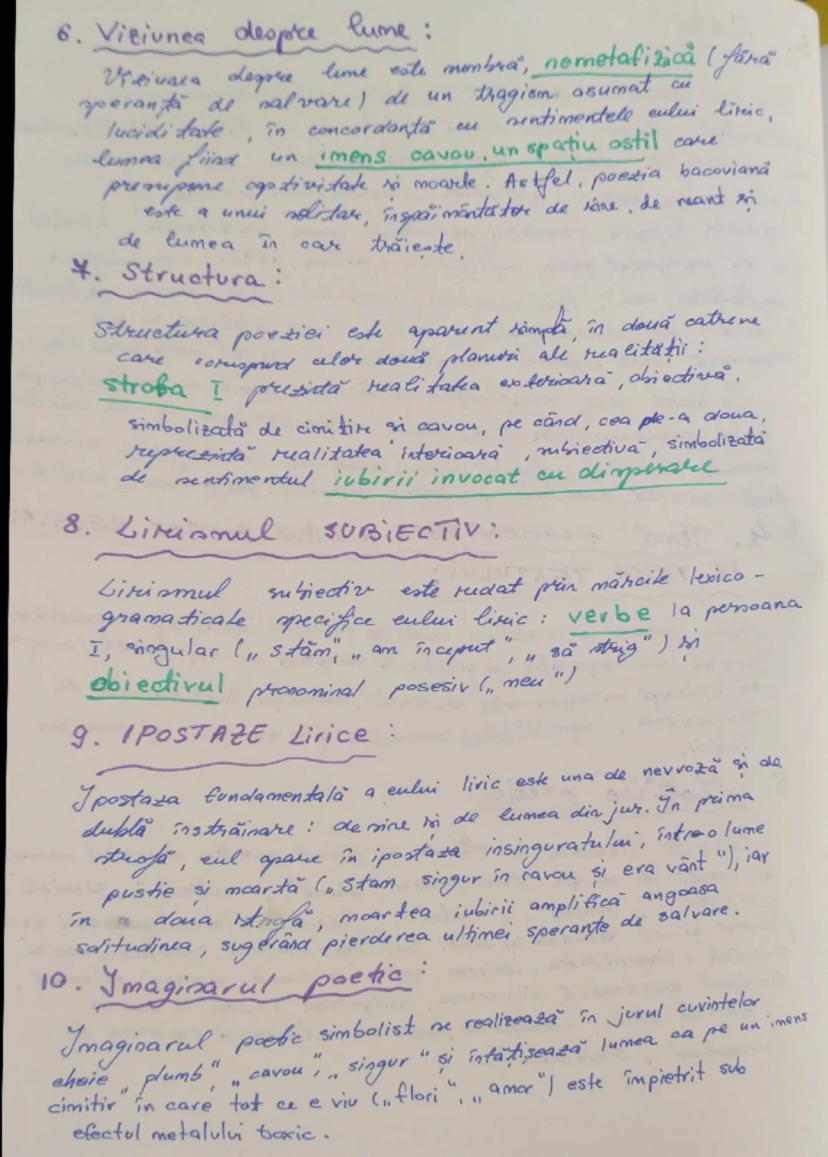 6. Viziunea despre lume :
Viziunea despre lume este sumbră, nemetafizică (fără
speranță de salvare) de un tragism asumat cu
luciditate, în concordanță cu sentimentele eului liric,
lumea fiind un imens cavou, un spațiu ostil care
presupune captivitate și moarte. Astfel, poezia bacoviană
este a unui solitar, înspăimântător de sine, de neant și
de lumea în car trăiește.
7. Structura :
Structura poeziei este aparent simplă, în două catrene
care corespund celor două planuri ale realității :
strofa I prezintă realitatea exterioară, obiectivă,
simbolizată de cimitire și cavou, pe când, cea de-a doua,
reprezintă realitatea interioară, subiectivă, simbolizată
de sentimentul iubirii invocat cu disperare
8. Lirismul SUBIECTIV :
Lirismul subiectiv este redat prin mărcile lexico -
gramaticale specifice eului liric : verbe la persoana
I, singular („stăm", „am început", „să strig") și
obiectivul pronominal posesiv („meu")
9. IPOSTAZE Lirice :
Ipostaza fundamentală a eului liric este una de nevroză și de
dublă înstrăinare : de sine și de lumea din jur. În prima
strofă, eul apare în ipostaza insinguratului, într-o lume
pustie și moartă („Stam singur în cavou și era vânt"), iar
în a doua strofă, moartea iubirii amplifică angoasa
solitudinea, sugerând pierderea ultimei speranțe de salvare.
10. Imaginarul poetic :
Imaginarul poetic simbolist se realizează în jurul cuvintelor
cheie „plumb", „cavou", „singur" și înfățișează lumea ca pe un imens
cimitir în care tot ce e viu („flori", „amor") este împietrit sub
efectul metalului toxic.